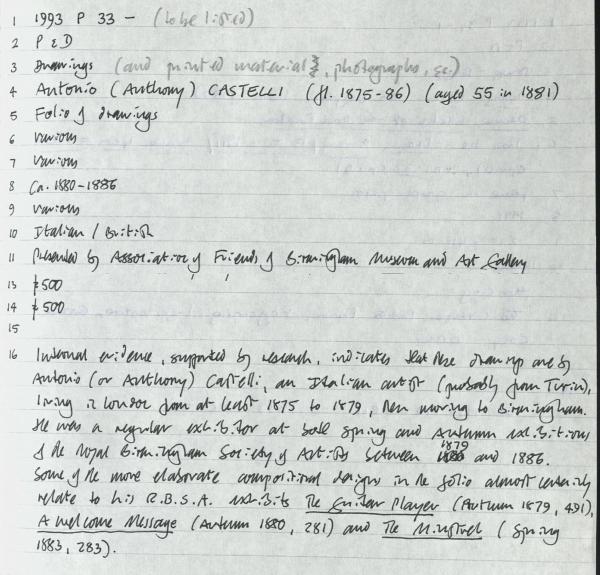 1 1993 P 33 - (to be listed)
2 P & D
3 Drawings (and printed material, photographs, &c.)
4 Antonio (Anthony) CASTELLI (fl. 1875-86) (aged 55 in 1881)
5 Folio of drawings
6 Various
7 Various
8 Ca. 1880-1886
9 Various
10 Italian / British
11 Presented by Association of Friends of Birmingham Museum and Art Gallery
13 £500
14 £500
15
16 Internal evidence, supported by research, indicates that these drawings are by
Antonio (or Anthony) Castelli, an Italian artist (probably from Turin),
living in London from at least 1875 to 1879, then moving to Birmingham.
He was a regular exhibitor at both Spring and Autumn exhibitions
of the Royal Birmingham Society of Artists between 1879 and 1886.
Some of the more elaborate compositional designs in the folio almost certainly
relate to his R.B.S.A. exhibits The Guitar Player (Autumn 1879, 491),
A Welcome Message (Autumn 1880, 281) and The Minstrel (Spring
1883, 283).